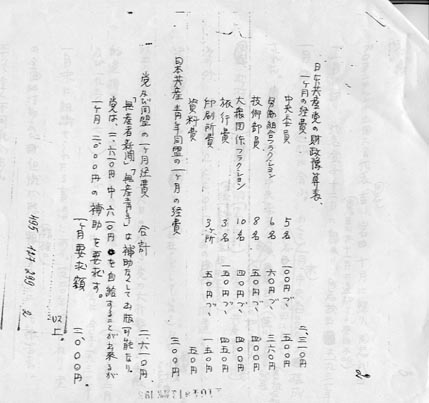 日本共産党の財政豫算表.
一ヶ月の経費. 二、三一〇円
中央委員 5名 一〇〇円ヅヽ 五〇〇円
労働組合フラクション 6名 六〇円ヅヽ 三六〇円
技術部員 8名 五〇円ヅヽ 四〇〇円
大衆団体フラクション 10名 四〇円ヅヽ 四〇〇円
旅行費 3名 一五〇円ヅヽ 四五〇円
印刷所費 3ヶ所 五〇円ヅヽ 一五〇円
資料費 五〇円
日本共産青年同盟の一ヶ月の経費 三〇〇円
党及び同盟の一ヶ月経費 合計 二、六一〇円.
「無産者新聞」「無産青年」は補助なくして出版可能なり.
党は、二、六一〇円中六一〇円を自給することが出来るが
一ヶ月二、〇〇〇円の補助を要求す.
一ヶ月要求額 二、〇〇〇円.
495 127 299 2